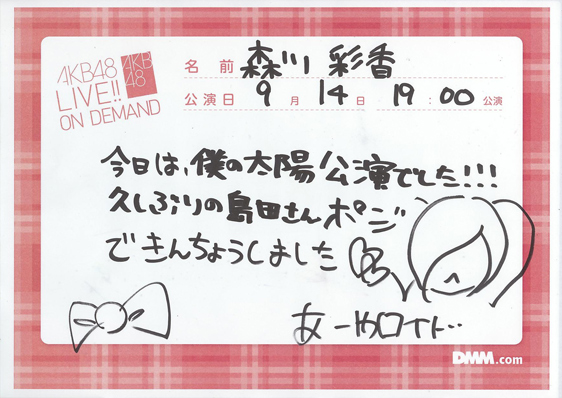 AKB48
LIVE!!
ON DEMAND
AKB
48
名前 森川 彩香
公演日 9月 14日 19:00 公演
今日は、僕の太陽公演でした!!!
久しぶりの島田さんポジ
できんちょうしました
あーやロイド‥
DMM.com